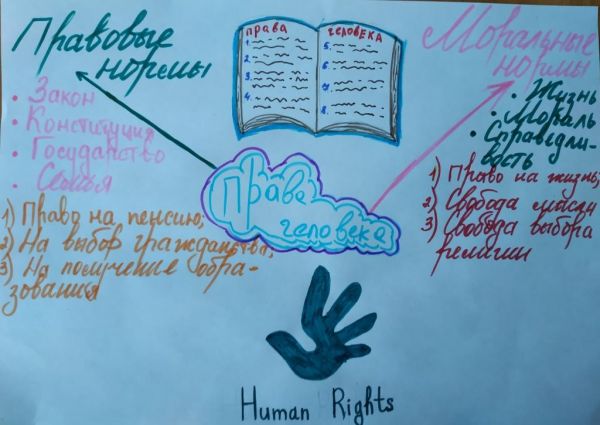 Правовые
нормы
• Закон
• Конституция
• Государство
• Семья
1) Право на пенсию;
2) На выбор гражданства;
3) На получение обра-
зования
права
человека
1.
2.
3.
4.
5.
6.
7.
8.
Права
человека
Моральные
нормы
• Жизнь
• Мораль
• Справедли-
вость
1) Право на жизнь;
2) Свобода мысли
3) Свобода выбора
религии
Human Rights